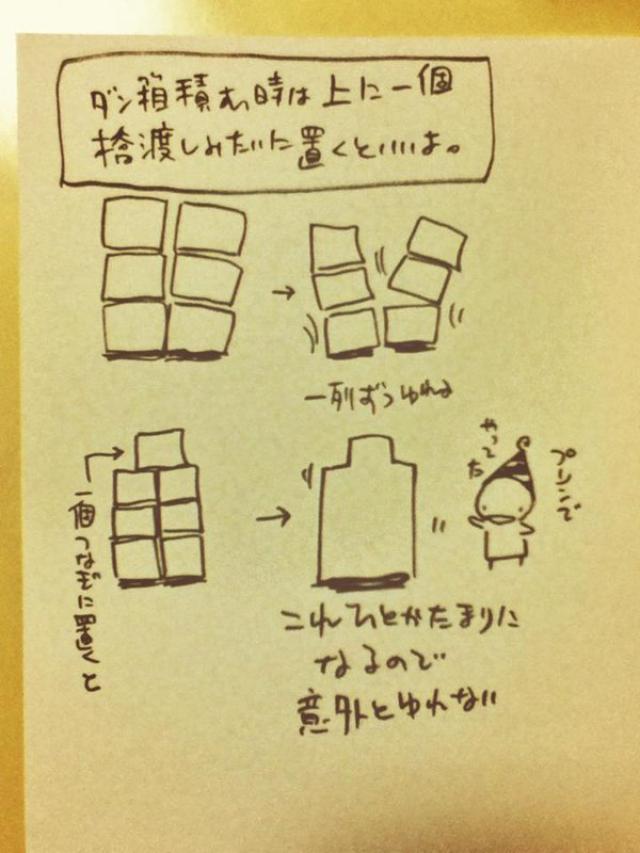 ダン箱積む時は上に一個
橋渡しみたいに置くといいよ。
一列ずつゆれる
一個つなぎに置くと
プリンで
やってた
これひとかたまりに
なるので
意外とゆれない